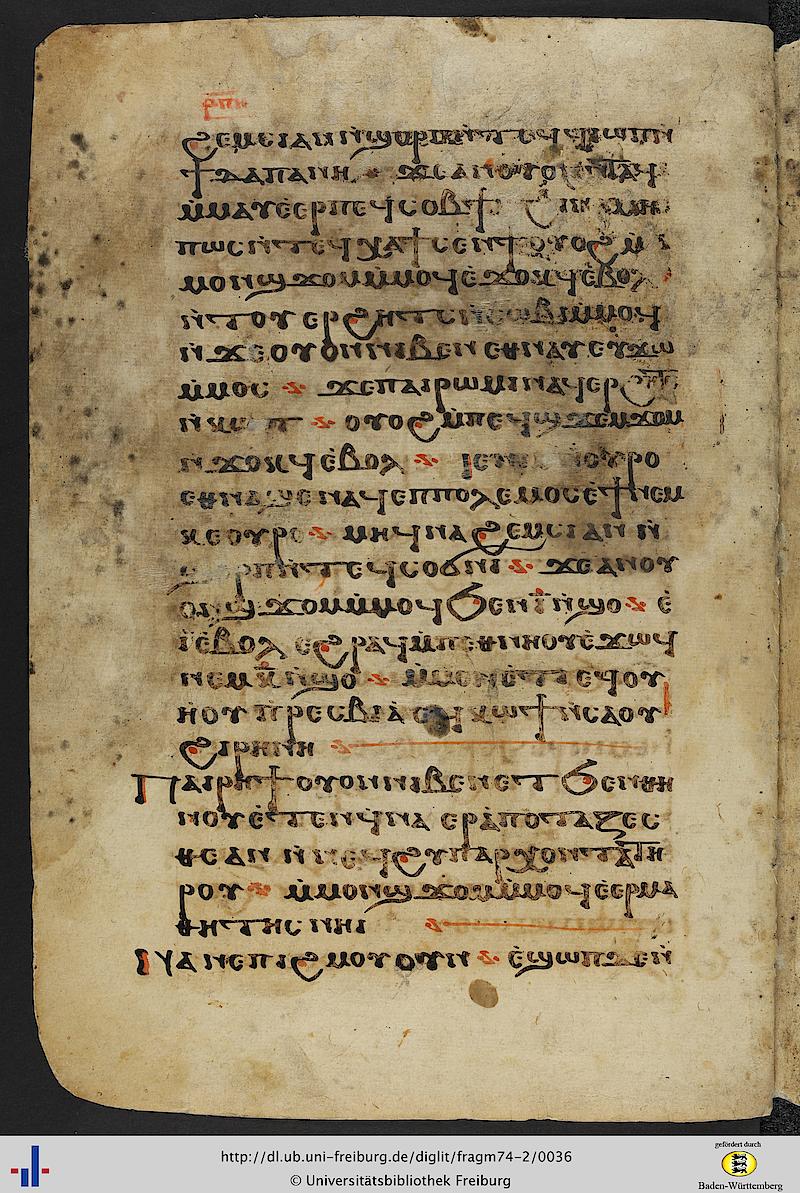 ⲣⲡⲏ
ϩⲉⲙⲥⲓ ⲁⲛ ⲛ̀ϣⲟⲣⲡ ⲛ̀ⲧⲉϥϥⲓⲱⲡ ⲛ̀
ϯⲇⲁⲡⲁⲛⲏ ϫⲉ ⲁⲛ ⲟⲩⲟⲛⲧⲁϥ
ⲙ̀ⲙⲁⲩ ⲉ̀ⲉⲣⲡⲉϥⲥⲟⲃϯ
ⲡⲱⲥ ⲛ̀ⲧⲉϥⲭⲁϯⲥⲉⲛϯ ⲟⲩⲟϩ ⲙ̀
ⲙⲟⲛϣϫⲟⲙ ⲙ̀ⲙⲟϥ ⲉ̀ϫⲟⲕϥ ⲉ̀ⲃⲟⲗ
ⲛ̀ⲧⲟⲩⲉⲣϩⲏⲧⲥ ⲛ̀ⲥⲱⲃⲓ ⲙ̀ⲙⲟϥ
ⲛ̀ϫⲉ ⲟⲩⲟⲛ ⲛⲓⲃⲉⲛ ⲉⲑⲛⲁⲩ ⲉⲩϫⲱ
ⲙ̀ⲙⲟⲥ ϫⲉ ⲡⲁⲓⲣⲱⲙⲓ ⲛⲁϥⲉⲣϩⲏⲧⲥ
ⲛ̀ⲕⲱⲧ ⲟⲩⲟϩ ⲙ̀ⲡⲉϥϣϫⲉⲙϫⲟⲙ
ⲛ̀ϫⲟⲕϥ ⲉ̀ⲃⲟⲗ ⲓⲉ ⲟⲩⲣⲟ
ⲉⲑⲛⲁϣⲉⲛⲁϥ ⲉⲡⲡⲟⲗⲉⲙⲟⲥ ⲉ̀ϯ ⲛⲉⲙ
ⲕⲉⲟⲩⲣⲟ ⲙⲏ ϥⲛⲁϩⲉⲙⲥⲓ ⲁⲛ ⲛ̀
ϣⲟⲣⲡ ⲛ̀ⲧⲉϥⲥⲟϭⲛⲓ ϫⲉ ⲁⲛ ⲟⲩ
ⲟⲛϣϫⲟⲙ ⲙ̀ⲙⲟϥ ϧⲉⲛ ⲓ̅ ⲛ̀ϣⲟ ⲉ̀
ⲓ̀ ⲉ̀ⲃⲟⲗ ⲉϩⲣⲁϥ ⲙ̀ⲡⲉⲑⲛⲏⲟⲩ ⲉ̀ϫⲱϥ
ⲛⲉⲙ ⲕ̅ ⲛ̀ϣⲟ ⲙ̀ⲙⲟⲛ ⲉ̀ⲧⲓ ⲉϥⲟⲩ
ⲏⲟⲩ ⲡ̀ⲣⲉⲥⲃⲓⲁ ⲉϥⲕⲱϯ ⲛ̀ⲥⲁ ⲟⲩ
ϩⲓⲣⲏⲛⲏ
ⲡⲁⲓⲣⲏϯ ⲟⲩⲟⲛ ⲛⲓⲃⲉⲛ ⲉⲧϧⲉⲛ ⲑⲏ
ⲛⲟⲩ ⲉ̀ⲧⲉⲛϥⲛⲁ ⲉⲣⲁ̀ⲡⲟⲧⲁⲍⲉⲥ
ⲑⲉ ⲁⲛ ⲛ̀ⲛⲉϥϩⲩⲡⲁⲣⲭⲟⲛⲧⲁ ⲧⲏ
ⲣⲟⲩ ⲙ̀ⲙⲟⲛϣϫⲟⲙ ⲙ̀ⲙⲟϥ ⲉ̀ⲉⲣⲙⲁ
ⲑⲏⲧⲏⲥ ⲛⲏⲓ
ⲛⲁⲛⲉ ⲡⲓϩⲙⲟⲩ ⲟⲩⲛ ⲉ̀ϣⲱⲡ ⲇⲉ ⲛ̀
http://dl.ub.uni-freiburg.de/diglit/fragm74-2/0036
© Universitätsbibliothek Freiburg
gefördert durch
Baden-Württemberg